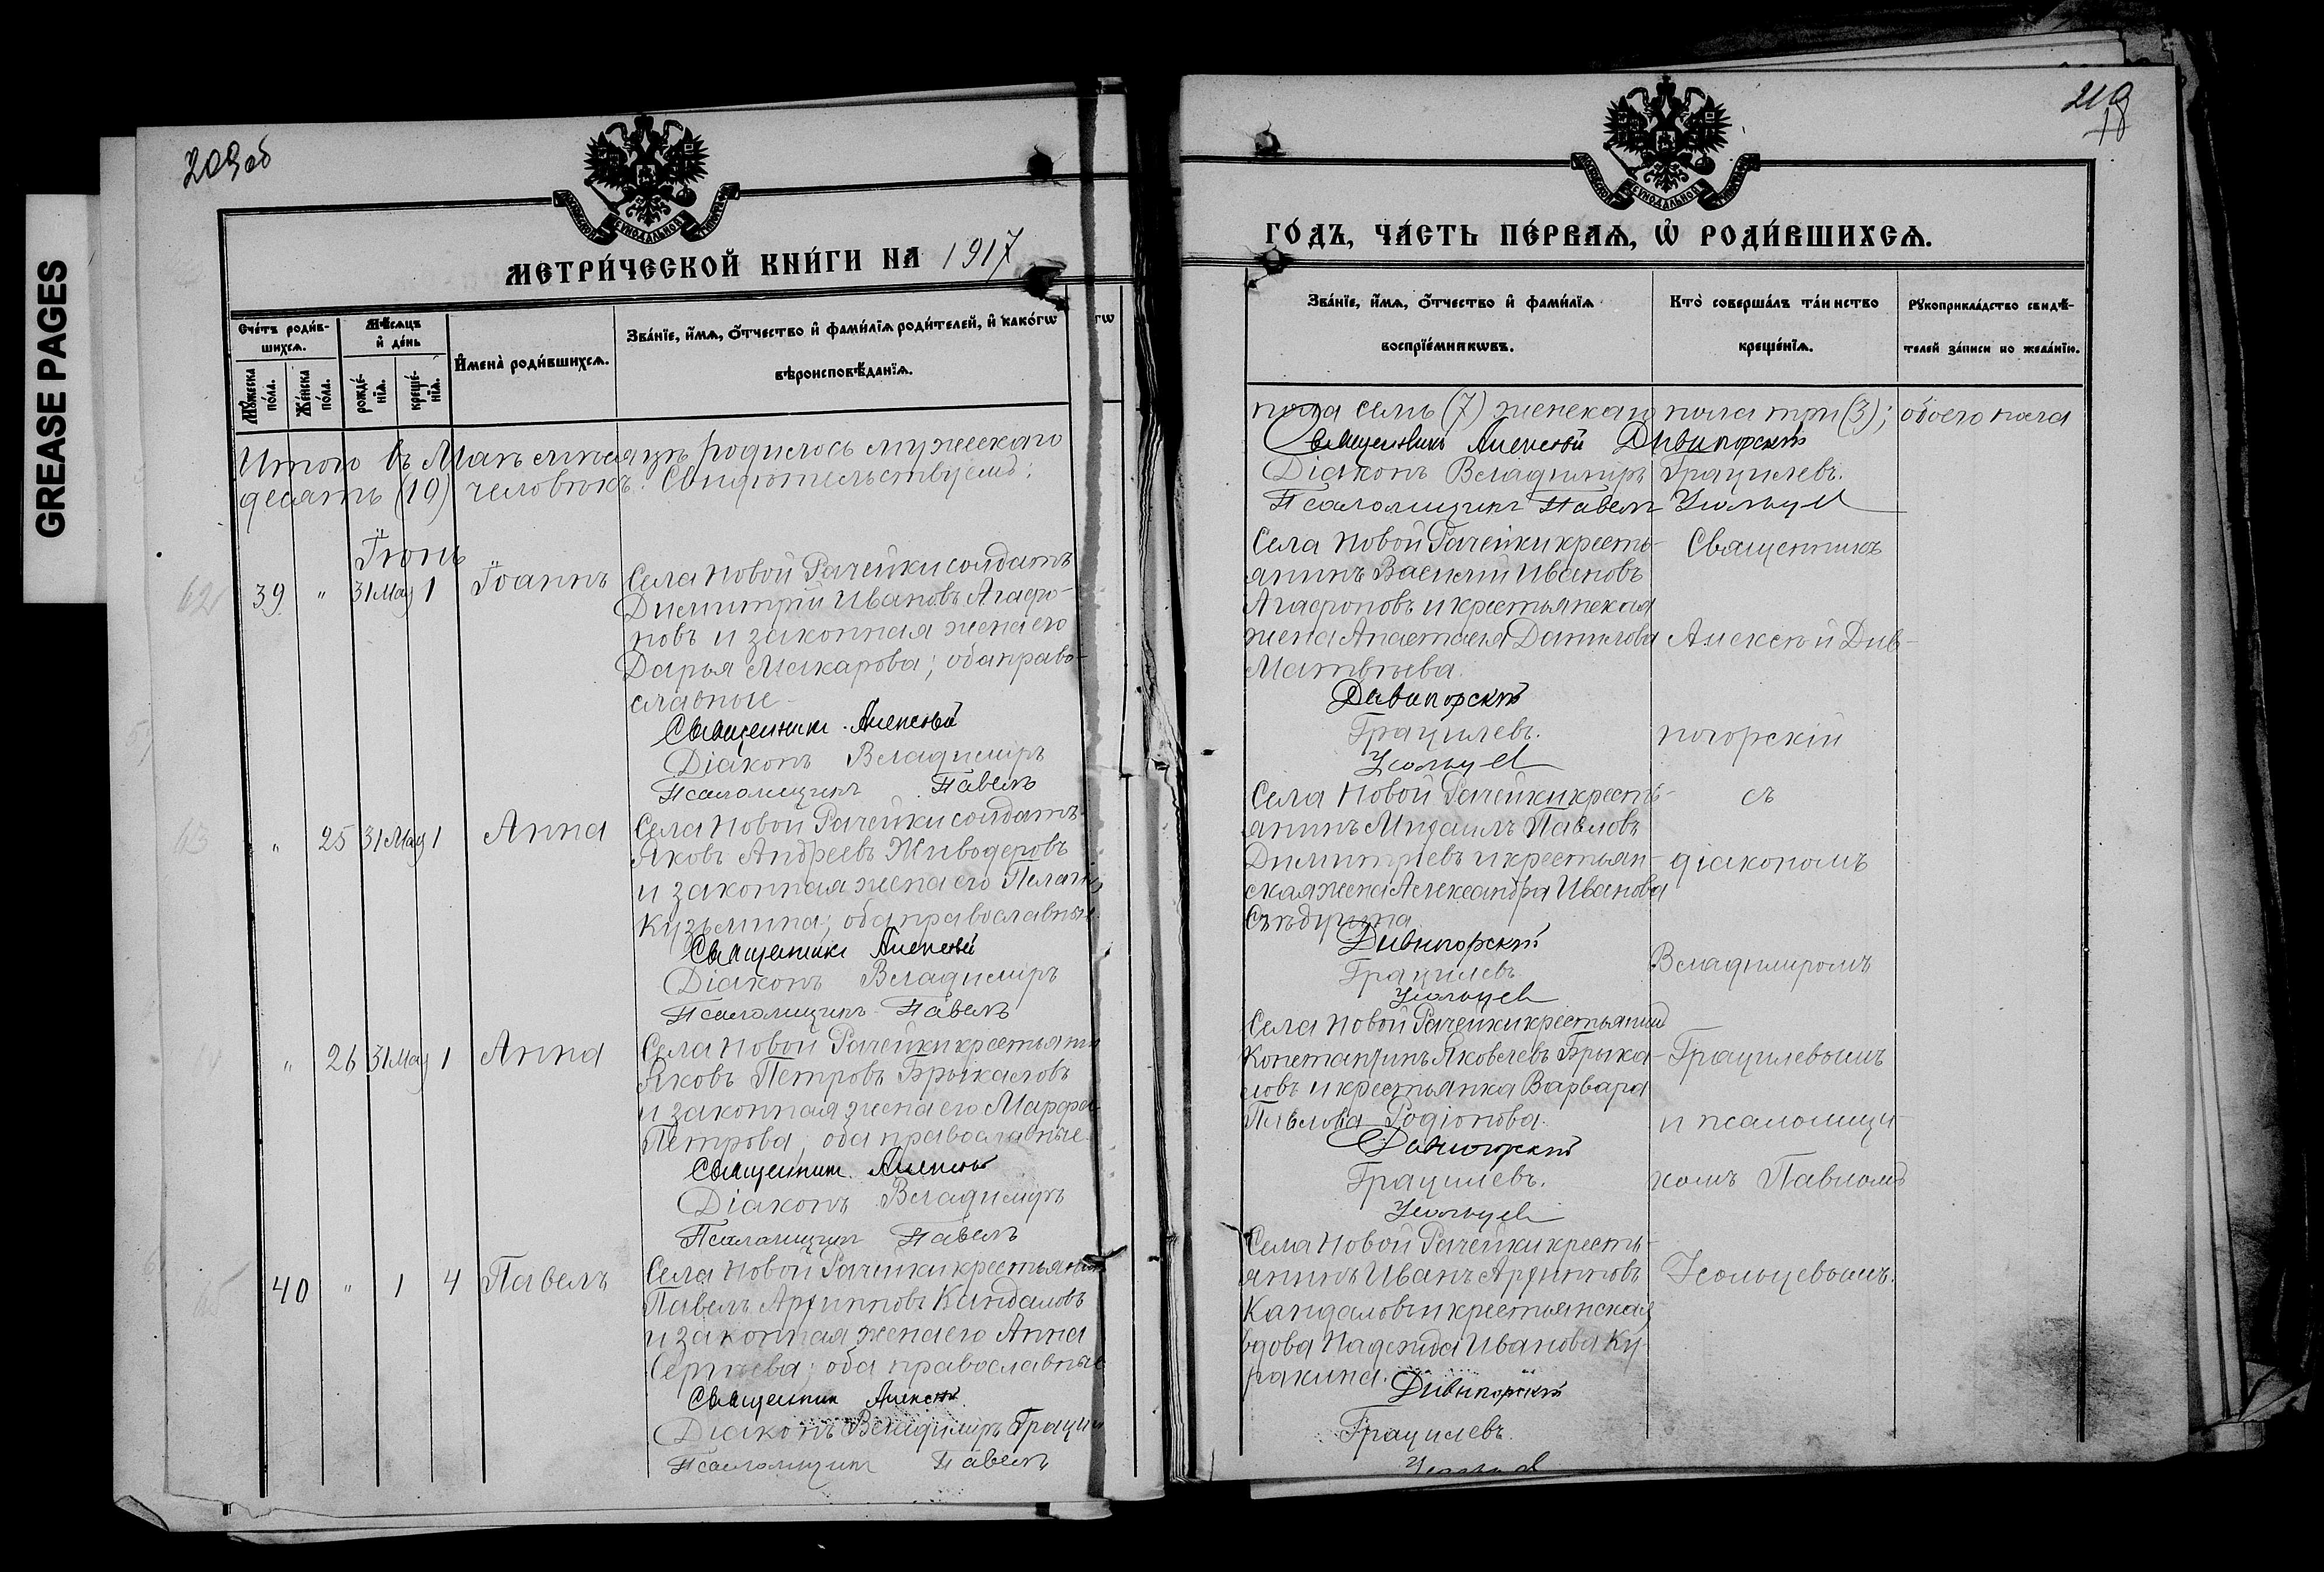 GREASE PAGES
209об
МЕТРИ́ЧЕСКОЙ КНИ́ГИ НА 1917
Сче́тъ роди́в-
шихсѧ.
Мѣ́сѧцъ
и҆ де́нь
Му́жеска
по́ла.
Же́нска
по́ла.
рожде́-
нїѧ.
креще́-
нїѧ.
И҆мена̀ роди́вшихсѧ.
Зва́нїе, и҆́мѧ, ѻ҆́тчество и҆ фами́лїѧ роди́телей, и҆ како́гѡ
вѣроисповѣ́данїѧ.
Итого въ Маѣ мѣсяцѣ родилось мужескаго
десять (10) человѣкъ. Свидѣтельствуемъ:
Іюнь
39 " 31 Мая 1 Іоаннъ
Села Новой Рачейки солдатъ
Димитрій Ивановъ Агафо-
новъ и законная жена его
Дарья Макарова; оба право-
славные
Священникъ Алексѣй
Діаконъ Владиміръ
Псаломщикъ Павелъ
" 25 31 Мая 1 Анна
Села Новой Рачейки солдатъ
Яковъ Андреевъ Живодеровъ
и законная жена его Пелагія
Кузьмина; оба православные.
Священникъ Алексѣй
Діаконъ Владиміръ
Псаломщикъ Павелъ
" 26 31 Мая 1 Анна
Села Новой Рачейки крестьянинъ
Яковъ Петровъ Брыкаловъ
и законная жена его Марфа
Петрова; оба православные.
Священникъ Алексѣй
Діаконъ Владиміръ
Псаломщикъ Павелъ
40 " 1 4 Павелъ
Села Новой Рачейки крестьянинъ
Павелъ Архипповъ Кандаловъ
и законная жена его Анна
Сергѣева; оба православные
Священникъ Алексѣй
Діаконъ Владиміръ Граци
Псаломщикъ Павелъ
ГО́ДЪ, ЧА́СТЬ ПЕ́РВАѦ, Ѡ҆ РОДИ́ВШИХСѦ.
Зва́нїе, и҆́мѧ, ѻ҆́тчество и҆ фами́лїѧ
воспрїе́мникѡвъ.
Кто̀ соверша́лъ та́инство
креще́нїѧ.
Рукоприкла́дство свидѣ́-
телей за́писи по жела́нїю.
пола семь (7) женскаго пола три (3); обоего пола
Священникъ Алексѣй Дивногорскій
Діаконъ Владиміръ Грацилевъ.
Псаломщикъ Павелъ Усольцев
Села Новой Рачейки кресть-
янинъ Василій Ивановъ
Агафоновъ и крестьянская
жена Анастасія Данилова
Матвѣева.
Дивногорскій
Грацилевъ.
Усольцев
Села Новой Рачейки кресть-
янинъ Михаилъ Павловъ
Димитріевъ и крестьян-
ская жена Александра Иванова
Дивногорскій
Грацилевъ
Усольцев
Села Новой Рачейки крестьянинъ
Константинъ Яковлевъ Брыка-
ловъ и крестьянка Варвара
Павлова Родіонова.
Дивногорскій
Грацилевъ.
Усольцев
Села Новой Рачейки кресть-
янинъ Иванъ Архипповъ
Кандаловъ и крестьянская
вдова Надежда Иванова Ку-
ракина.
Дивногорскій
Грацилевъ.
Священникъ
Алексѣй Див-
ногорскій
съ
діакономъ
Владиміромъ
Грацилевымъ
и псаломщи-
комъ Павломъ
Усольцевымъ.